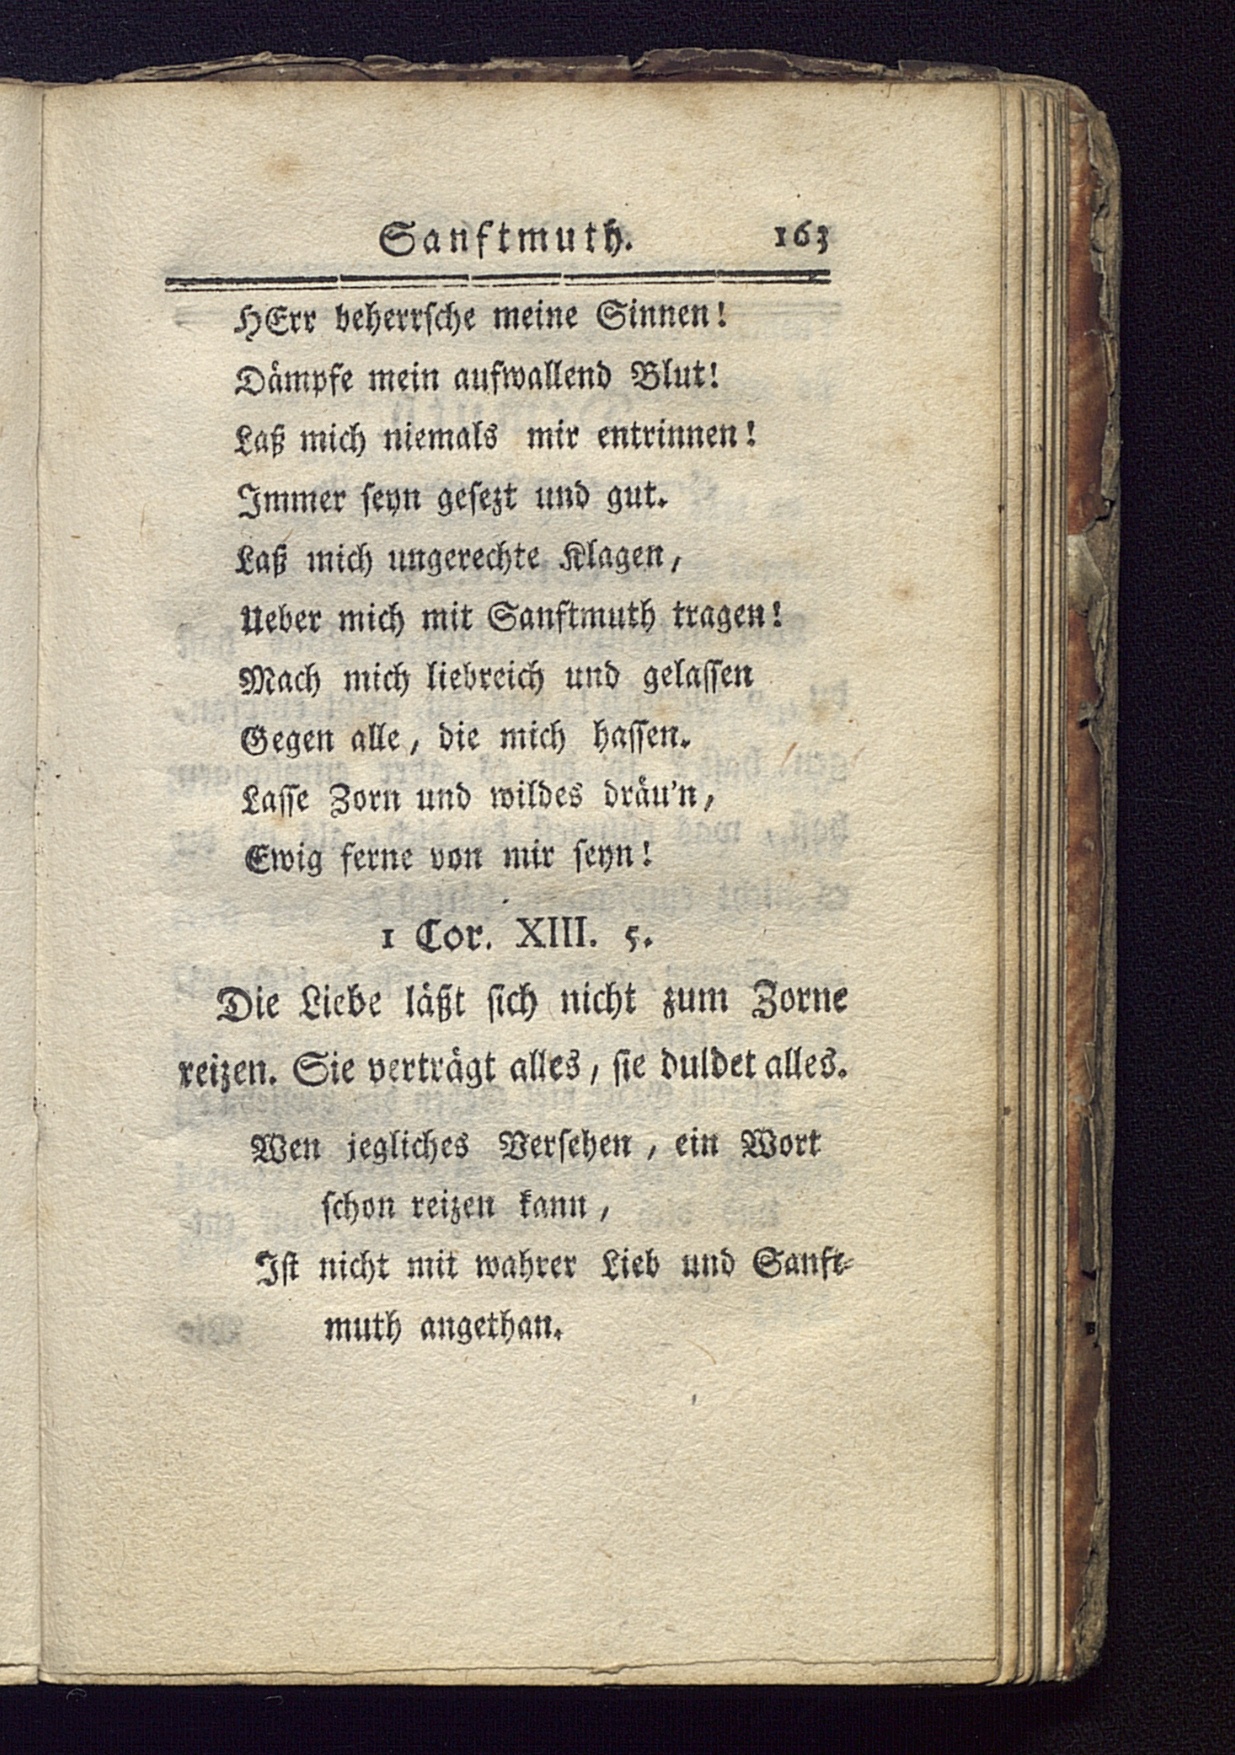 Sanftmuth. 163
HErr beherrsche meine Sinnen!
Dämpfe mein aufwallend Blut!
Laß mich niemals mir entrinnen!
Immer seyn gesezt und gut.
Laß mich ungerechte Klagen,
Ueber mich mit Sanftmuth tragen!
Mach mich liebreich und gelassen
Gegen alle, die mich hassen.
Lasse Zorn und wildes dräu'n,
Ewig ferne von mir seyn!
1 Cor. XIII. 5.
Die Liebe läßt sich nicht zum Zorne
reizen. Sie verträgt alles, sie duldet alles.
Wen jegliches Versehen, ein Wort
schon reizen kann,
Ist nicht mit wahrer Lieb und Sanft-
muth angethan.